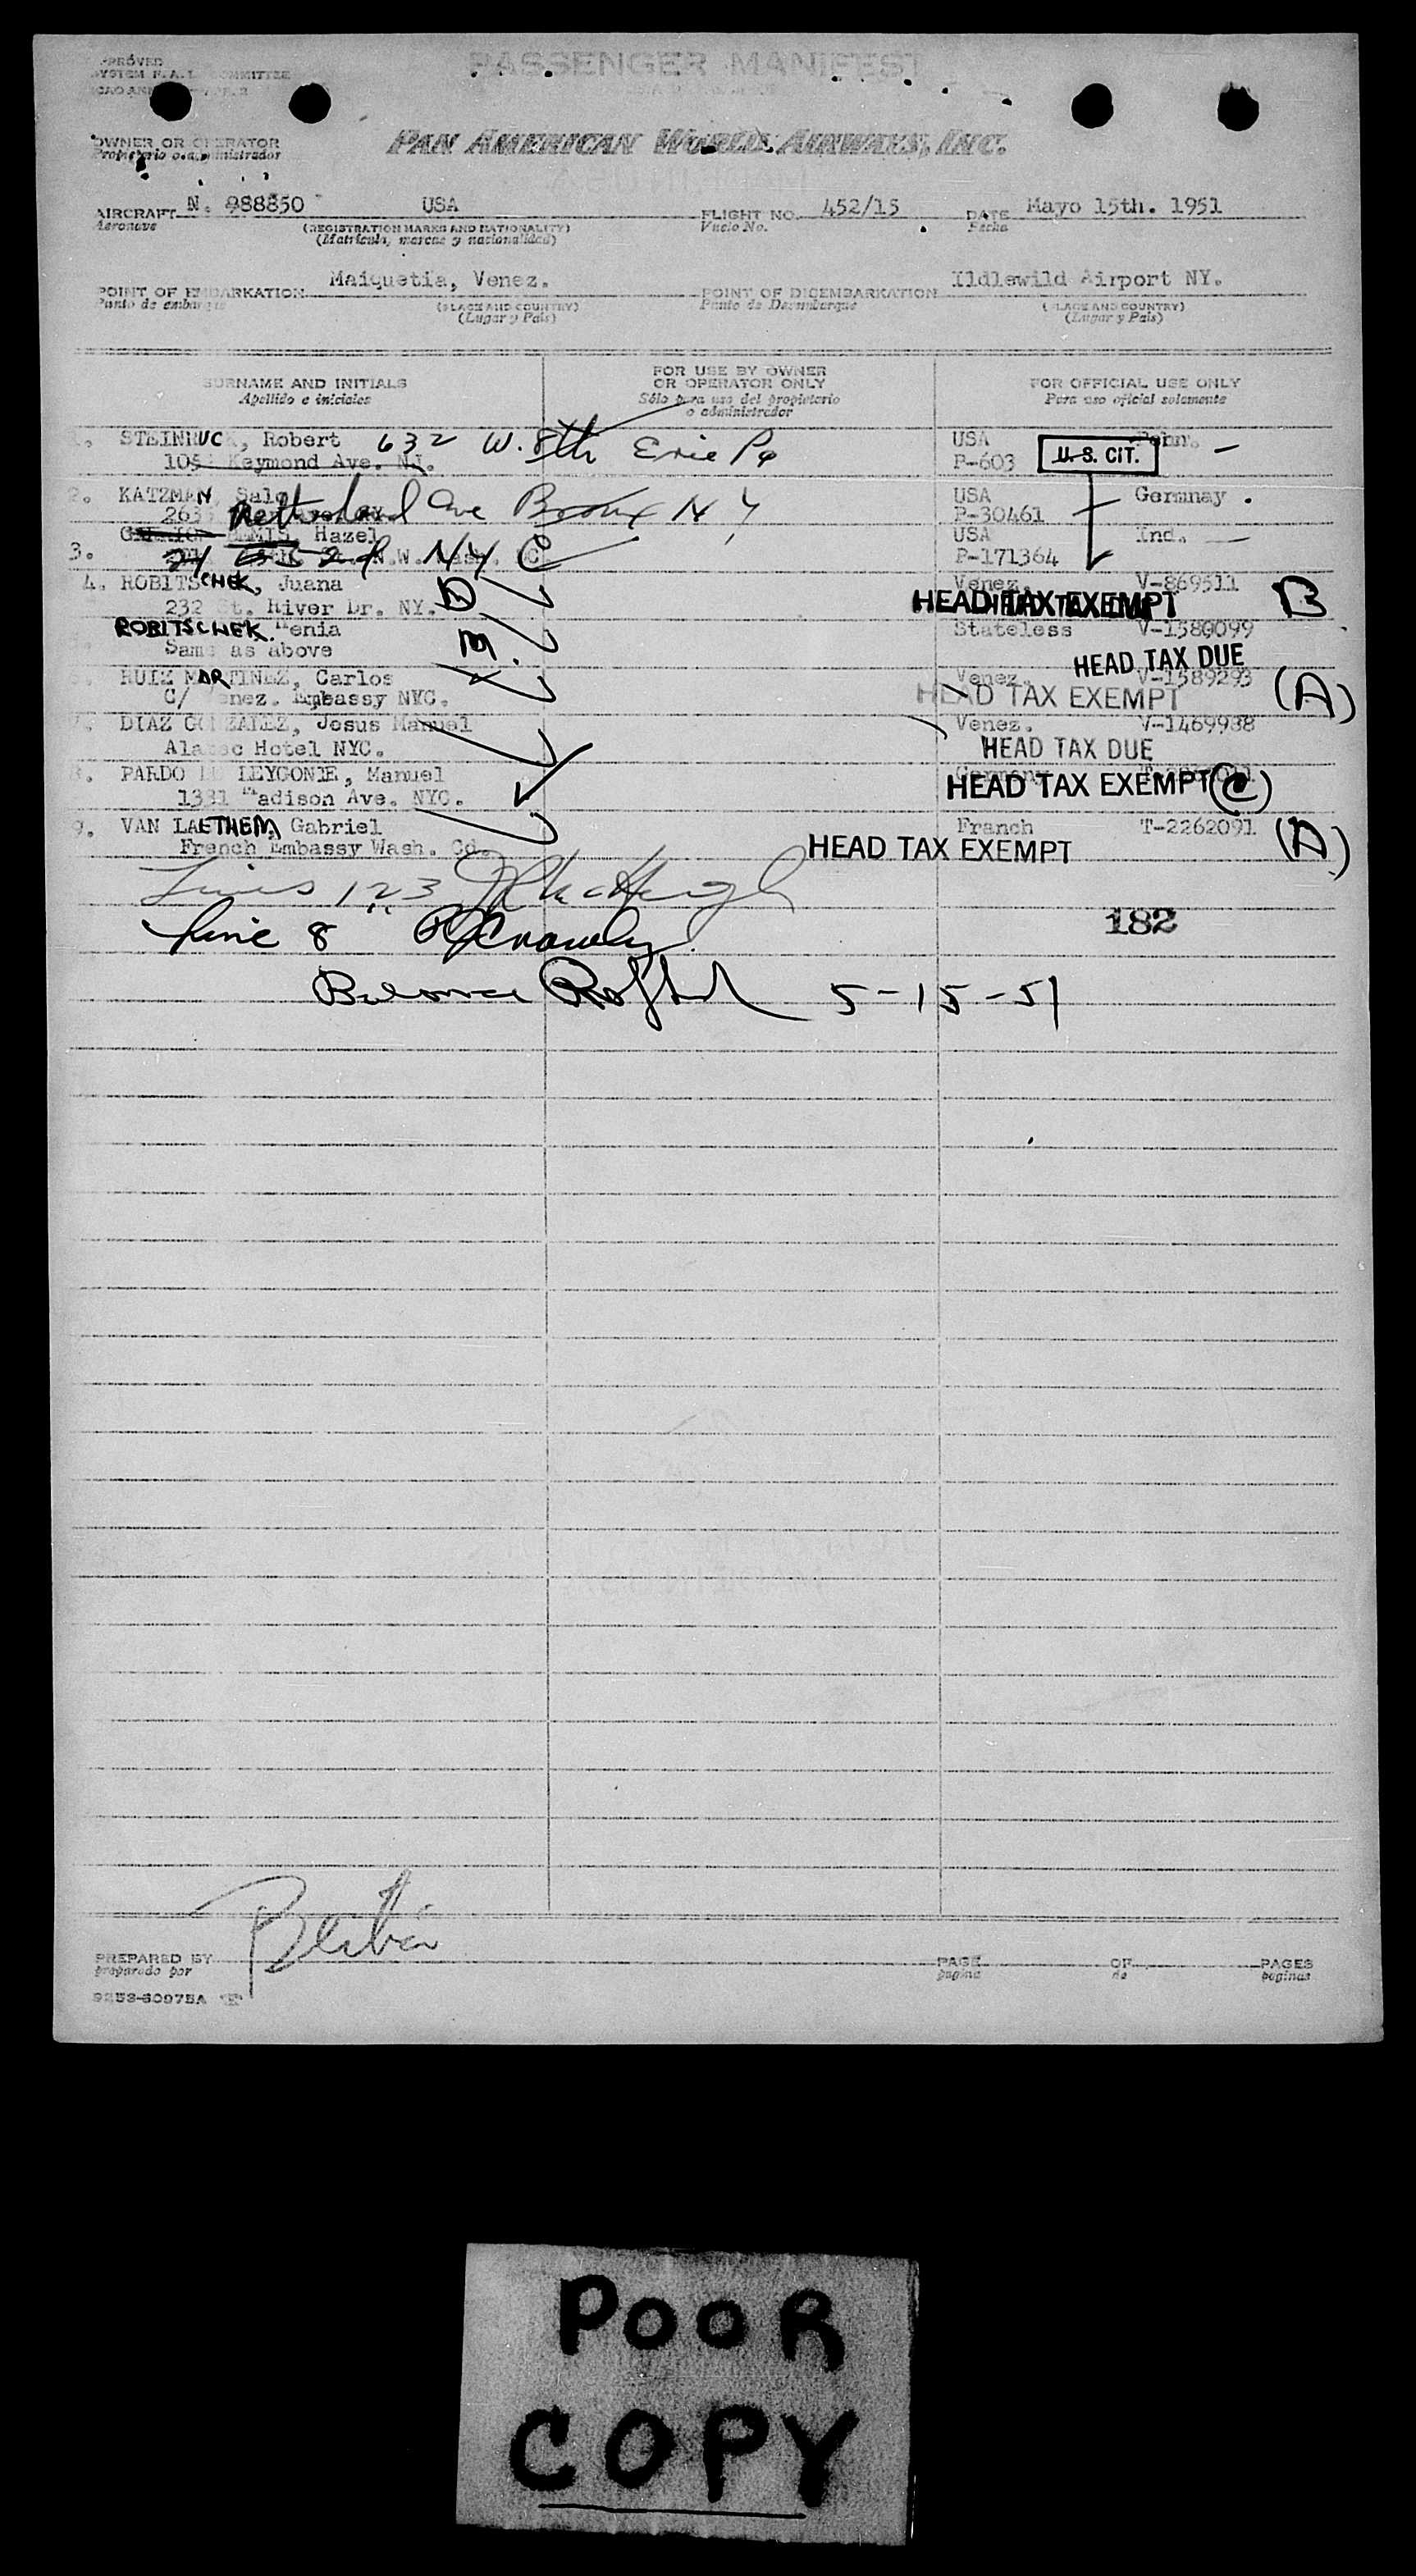 PASSENGER MANIFEST
OWNER OR OPERATOR
PAN AMERICAN WORLD AIRWAYS, INC.
AIRCRAFT N. 988850 USA FLIGHT NO. 452/15 DATE Mayo 15th. 1951
Aeronave (REGISTRATION MARKS AND NATIONALITY) Vuelo No. Fecha
(Matrícula, marcas y nacionalidad)
POINT OF EMBARKATION Maiquetia, Venez. POINT OF DISEMBARKATION Ildlewild Airport NY.
Punto de (PLACE AND COUNTRY) Punto de Desembarque (PLACE AND COUNTRY)
(Lugar y País) (Lugar y País)
SURNAME AND INITIALS FOR USE BY OWNER OR OPERATOR ONLY FOR OFFICIAL USE ONLY
Apellido e iniciales Sólo para uso del propietario o administrador Para uso oficial solamente
STEINRUCK, Robert 632 W. 8th Erie Pa USA
Raymond Ave. N.J. P-603 U.S. CIT.
2. KATZMAN, Salo USA Germnay.
Ave Bronx N Y P-30461
Hazel USA Ind.
3. 21 N.W. NY C P-171364
4. ROBITSCHEK, Juana D Venez. V-869511
232 St. River Dr. NY. HEAD TAX EXEMPT B
ROBITSCHEK. enia M Stateless V-1580099
Same as above HEAD TAX DUE
RUIZ MARTINEZ, Carlos Venez. V-1589293
C/ Venez. Embassy NYC. HEAD TAX EXEMPT (A)
DIAZ GONZALEZ, Jesus Manuel Venez. V-1469938
Hotel NYC. HEAD TAX DUE
8. PARDO LEYGONIE, Manuel
1331 Madison Ave. NYC. HEAD TAX EXEMPT (C)
9. VAN LAETHEM, Gabriel Franch T-2262091 (A)
French Embassy Wash. Cd. HEAD TAX EXEMPT
Lines 1 2 3
Line 8 182
Balance 5-15-51
PREPARED BY PAGE OF PAGES
preparado por página de páginas
9253-60975A
POOR
COPY